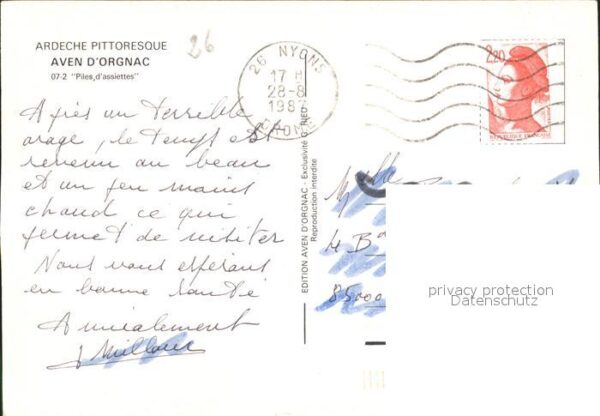 ARDECHE PITTORESQUE
AVEN D'ORGNAC
07-2 "Piles d'assiettes"
26
26 NYONS
17 H
28-8
1987
DROME
2,20
REPUBLIQUE FRANÇAISE
Après un terrible
orage, le temps est
revenu au beau
et un peu moins
chaud ce qui
permet de visiter
Nous vous espérons
en bonne santé
Amicalement
EDITION AVEN D'ORGNAC - Exclusivité G. RIED
Reproduction interdite
4 Bd
85000
privacy protection
Datenschutz